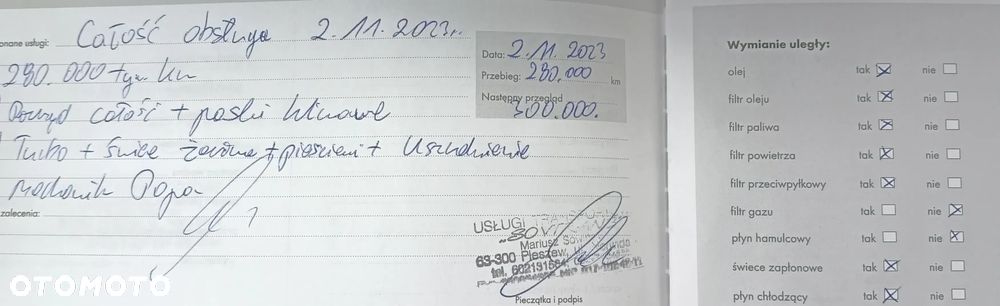 onane usługi: Całość obsługa 2.11.2023r.
280.000 tyś. km
całość + paski klinowe
Turbo + świece żarowe + pierścieni + Uszczelnienie
Mechanik Popa
zalecenia:
Data: 2.11.2023
Przebieg: 280.000 km
Następny przegląd
300.000.
USŁUGI
Mariusz
63-300 Pleszew,
tel.
Pieczątka i podpis
Wymianie uległy:
olej tak nie
filtr oleju tak nie
filtr paliwa tak nie
filtr powietrza tak nie
filtr przeciwpyłkowy tak nie
filtr gazu tak nie
płyn hamulcowy tak nie
świece zapłonowe tak nie
płyn chłodzący tak nie
OTOMOTO